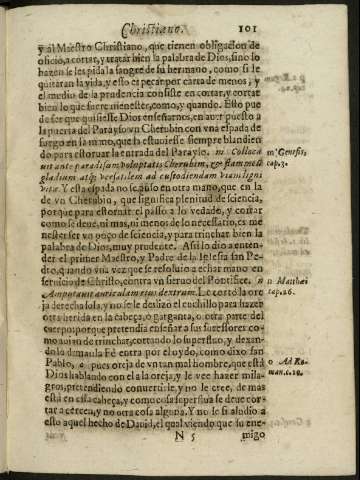 Christiano. 101
y al Maestro Christiano, que tienen obligacion de
oficio, a cortar, y tratar bien la palabra de Dios, sino lo
hazen se les pida la sangre de su hermano, como si le
quitaran la vida, y esto es pecar por carta de menos, y
el medio de la prudencia consiste en cortar, y cortar
bien lo que fuere menester, como, y quando. Esto pue
de ser que quisiesse Dios enseñarnos, en auer puesto a
la puerta del Parayso vn Cherubin con vna espada de
fuego en la mano, que la estuuiesse siempre blandien
do para estoruar la entrada del Parayso. m Colloca
uit ante paradisum voluptatis Cherubim, & flammeũ
gladium atq; versatilem ad custodiendam viam ligni
vitæ. Y esta espada no se puso en otra mano, que en la
de vn Cherubin, que significa plenitud de sciencia,
porque para estoruar el passo a lo vedado, y cortar
como se deue, ni mas, ni menos de lo necessario, es me
nester ser vn poço de sciencia, y para trinchar bien la
palabra de Dios, muy prudente. Assi lo dio a enten-
der el primer Maestro, y Padre de la Iglesia san Pe-
dro, quando vna vez que se resoluio a echar mano en
seruicio de Christo, contra vn sieruo del Pontifice. n
Amputauit auriculam eius dextram. Le cortò la ore
ja derecha sola, y no se le deslizò el cuchillo para hazer
otra herida en la cabeça, o garganta, o otra parte del
cuerpo: porque pretendia enseñar a sus sucessores co-
mo auian de trinchar, cortando lo superfluo, y dexan-
do la
Fè entra por el oydo, como dixo san
Pablo, o pues oreja de vn tan mal hombre, que està
Dios hablando con el a la oreja, y le vee hazer mila-
gros, pretendiendo conuertirle, y no le cree, de mas
està en essa cabeça, y como cosa superflua se deue cor-
tar a cercen, y no otra cosa alguna. Y no le si aludio a
esto aquel hecho de Dauid, el qual viendo que su ene-
N 5 migo
m Genesis,
cap.3.
n Matthæi
cap.26.
o Ad Ro-
man.c.10.